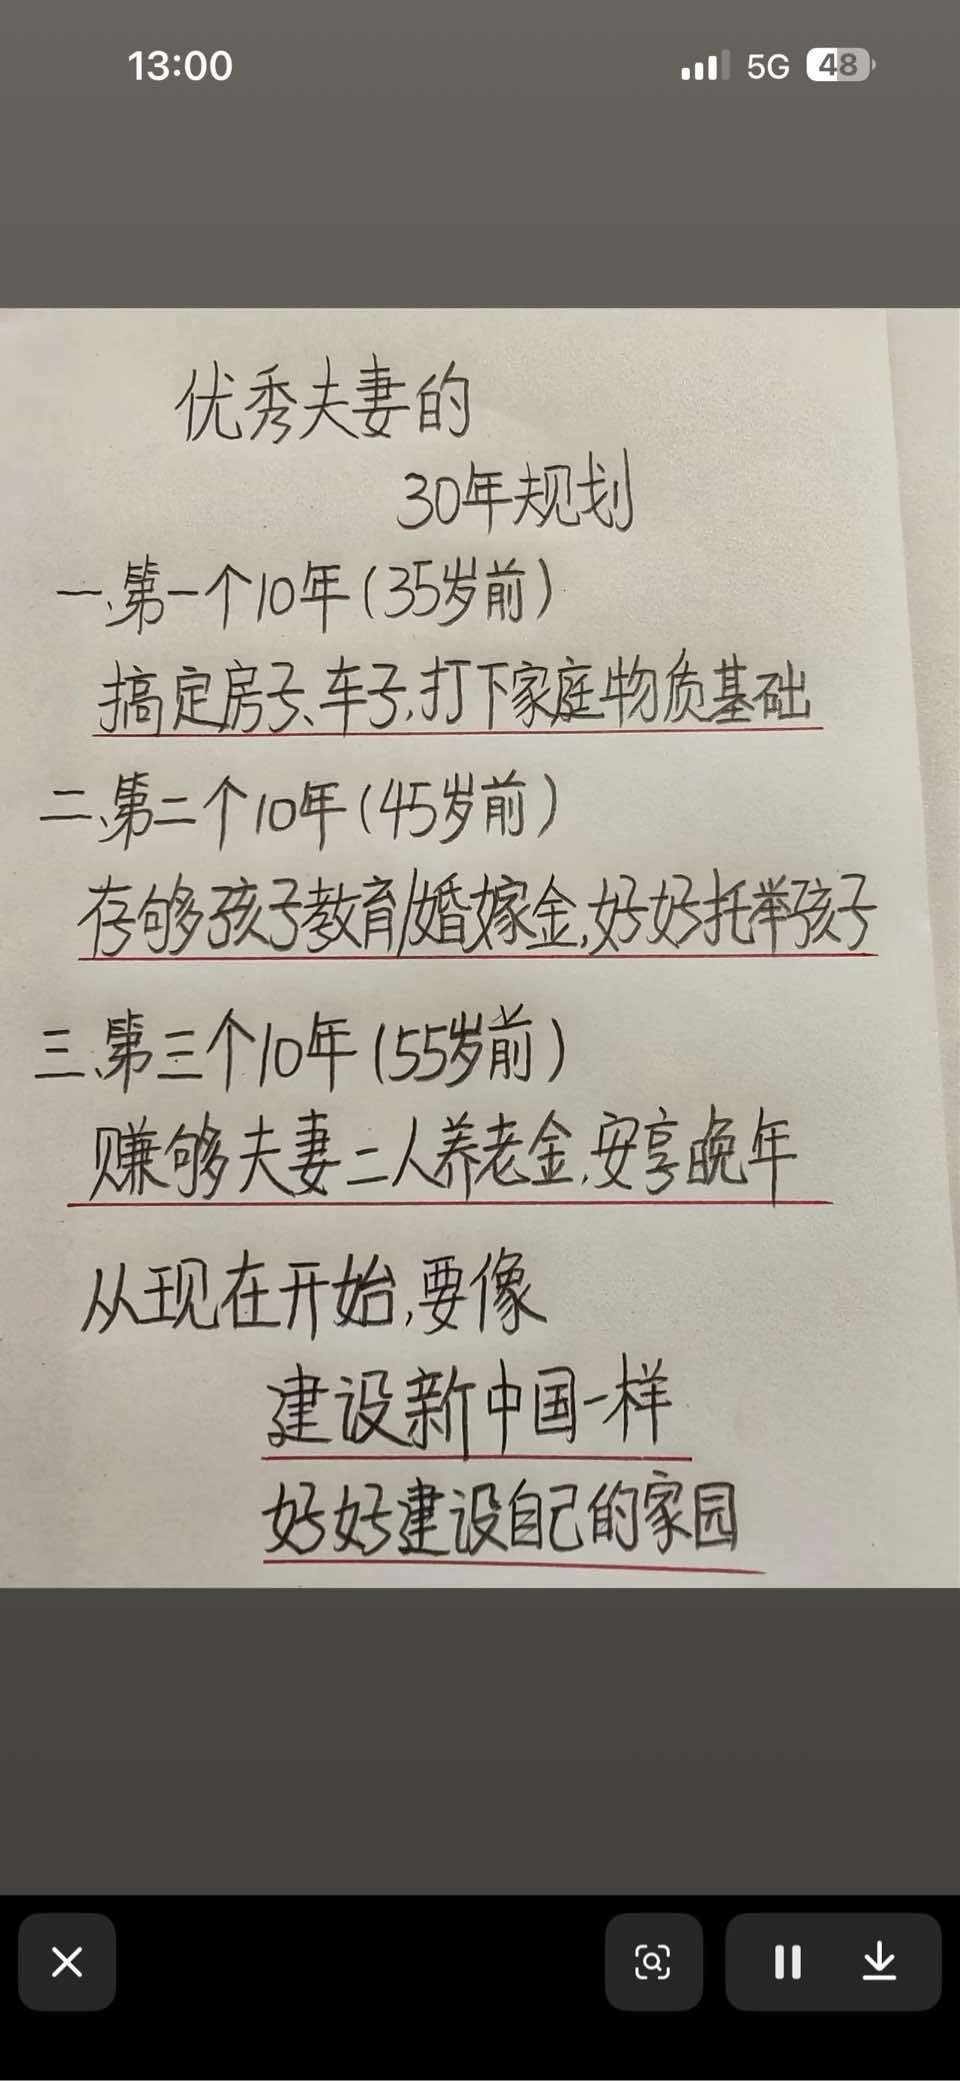 13:00
5G 48
优秀夫妻的
30年规划
一、第一个10年(35岁前)
搞定房子、车子,打下家庭物质基础
二、第二个10年(45岁前)
存够孩子教育/婚嫁金,好好托举孩子
三、第三个10年(55岁前)
赚够夫妻二人养老金,安享晚年
从现在开始,要像
建设新中国一样
好好建设自己的家园